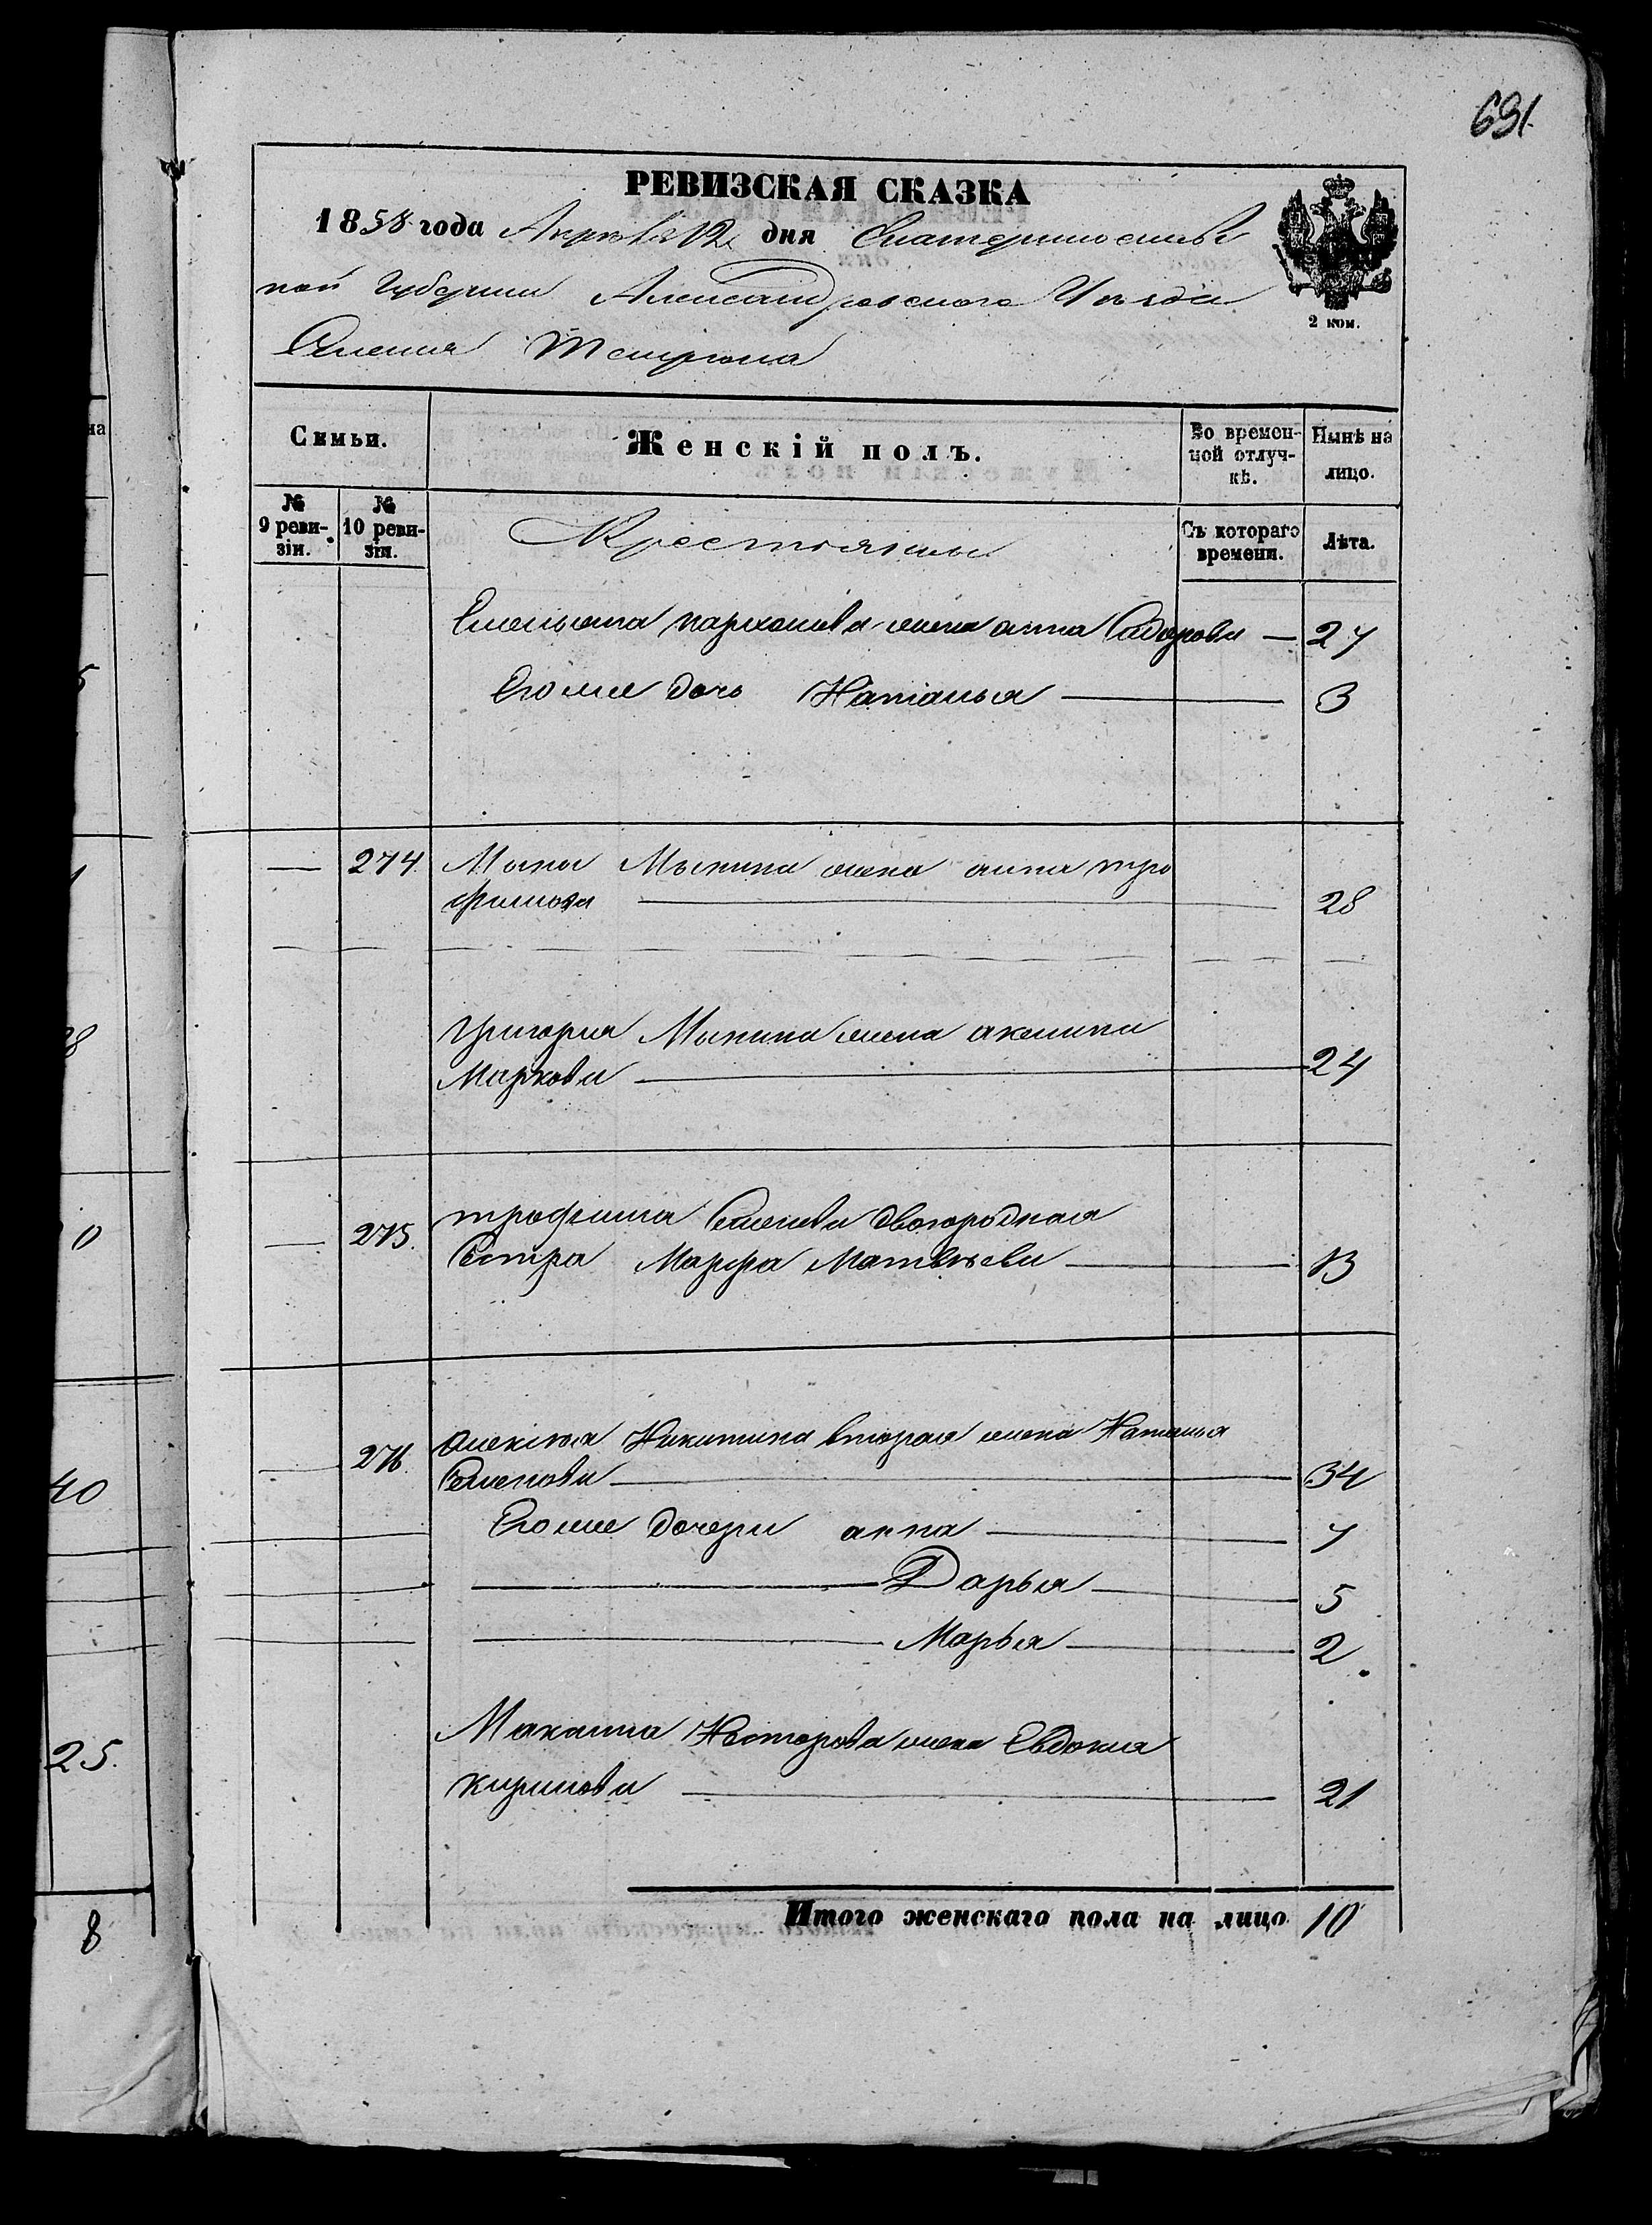 691
РЕВИЗСКАЯ СКАЗКА
1858 года Апреля 12 дня Екатеринославс
кой Губернии Александровского Уезда
Селения
2 коп.
Семьи.
Женскій полъ.
Во времен-
ной отлуч-
кѣ.
Нынѣ на
лицо.
№
9 реви-
зіи.
№
10 реви-
зіи.
Крестьяны
Съ котораго
времени.
Лѣта.
Емельяна Пархомова жена анна Сидорова — 27
Его же дочь Наталья 3
274 Мины Мынина жена анна тро
фимова 28
Григория Мынина жена акилина
Маркова 24
275. трофима Семенова двоюродная
Сестра Марфа Матвѣева 13
276. Алексѣя Никитина вторая жена Наталья
Семенова 34
Его же дочери анна 7
Дарья 5
Марья 2
Несторова жена Евдокия
Кирилова 21
Итого женскаго пола на лицо 10
на
0
40
25.
8